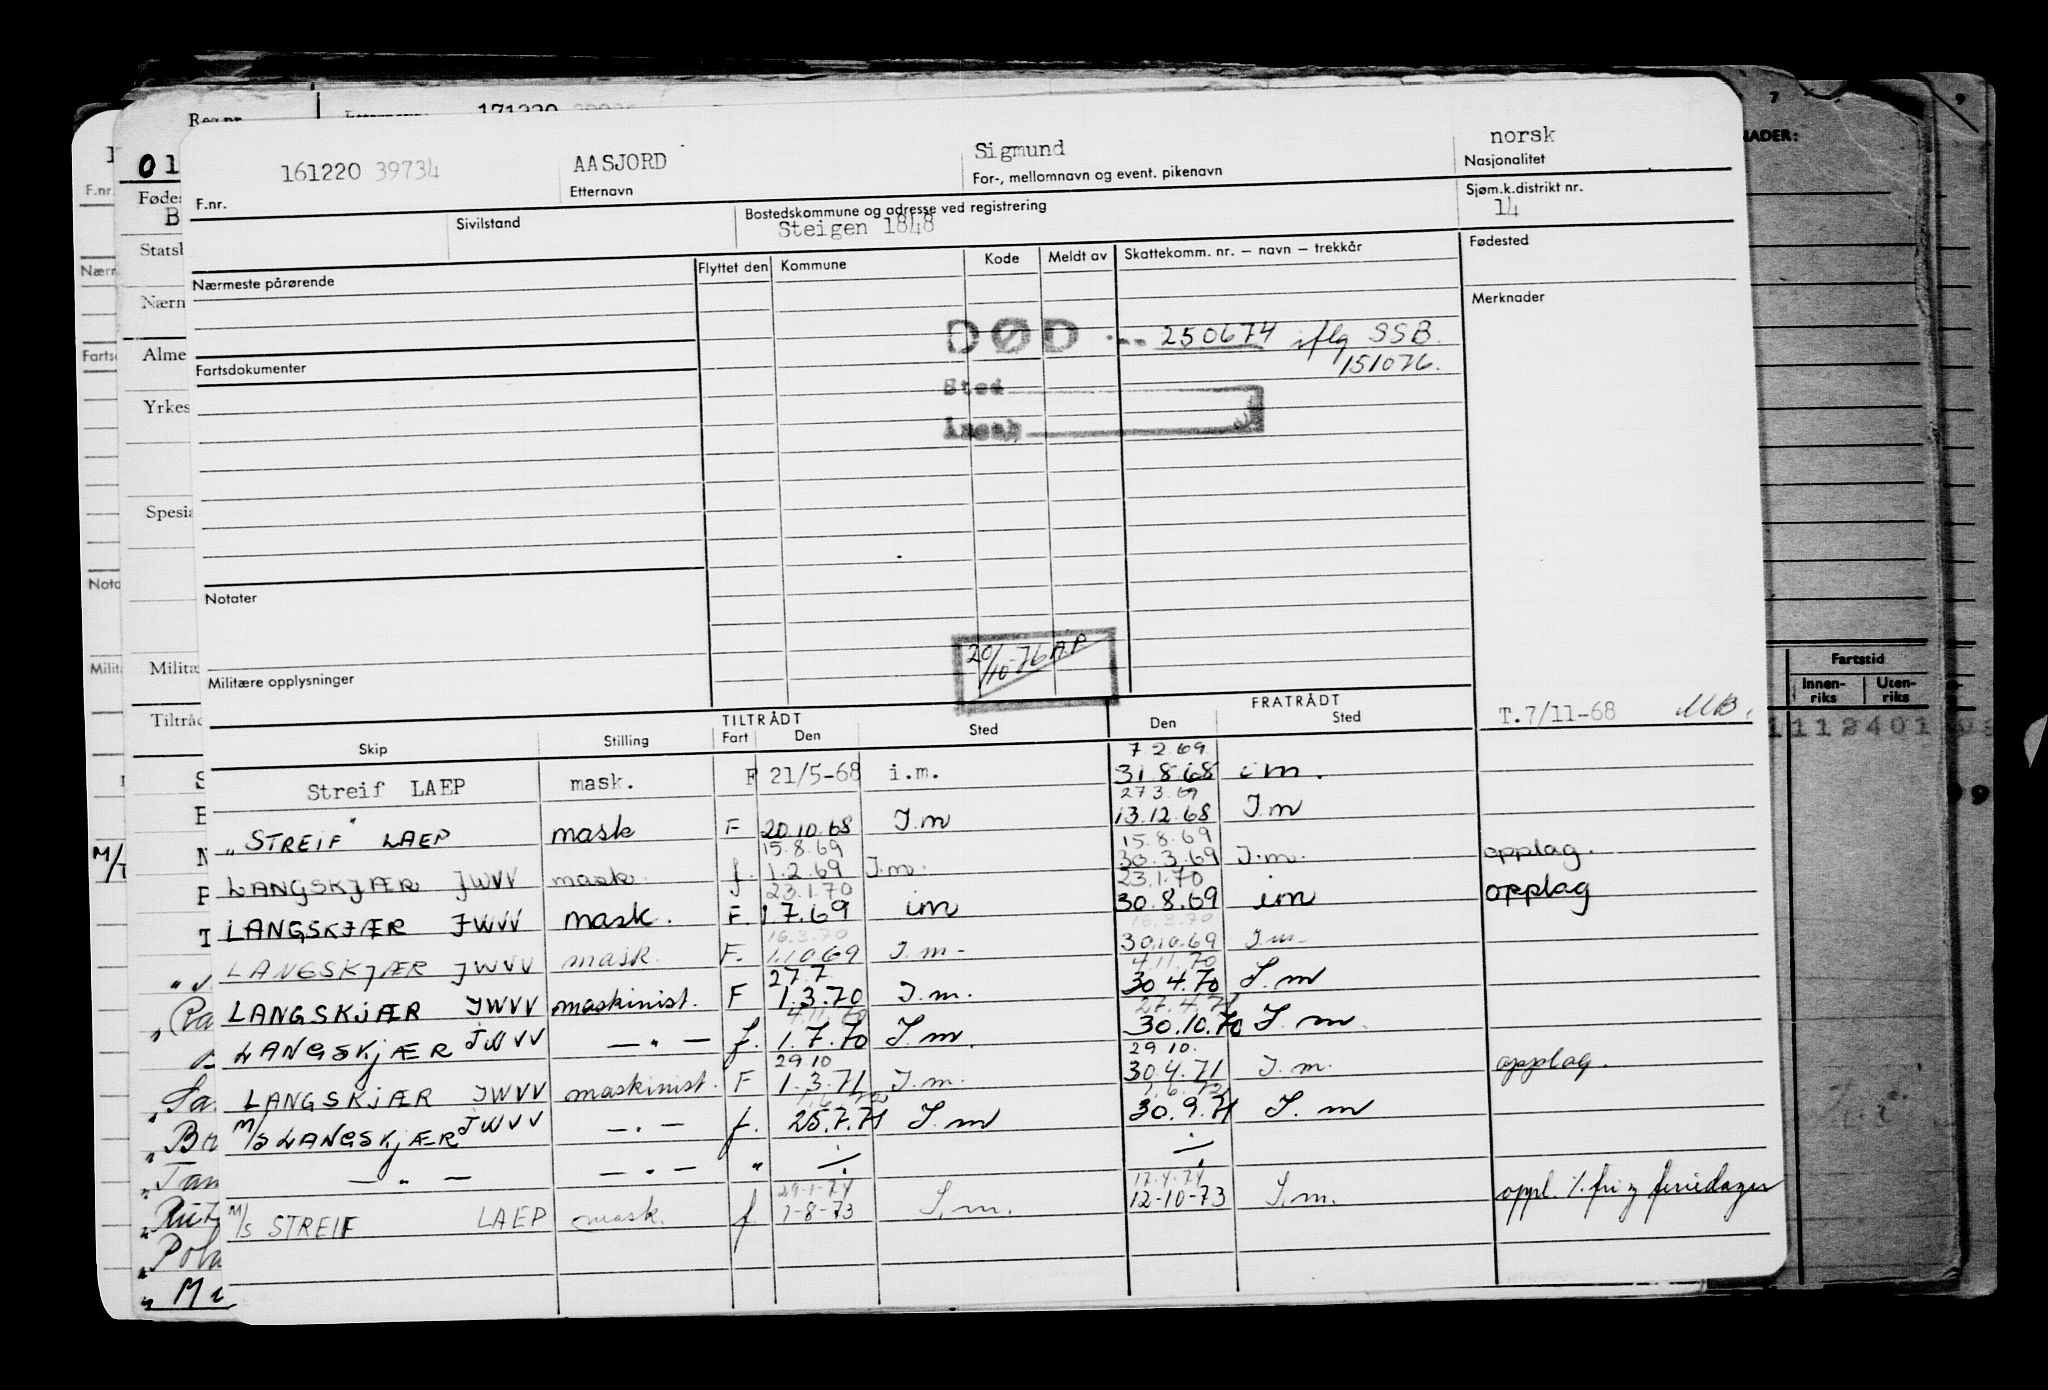 161220 39734 AASJORD Sigmund norsk
F.nr. Etternavn For-, mellomnavn og event. pikenavn Nasjonalitet
Sivilstand Bostedskommune og adresse ved registrering Sjøm.k.distrikt nr.
Steigen 1848 14
Nærmeste pårørende Flyttet den Kommune Kode Meldt av Skattekomm. nr. – navn – trekkår Fødested
Merknader
DØD 250674 iflg SSB.
151076.
Fartsdokumenter
Sted
Årsak
Notater
20/10-76 AP
Militære opplysninger
TILTRÅDT FRATRÅDT
Skip Stilling Fart Den Sted Den Sted T.7/11-68 MB.
7.2.69.
Streif LAEP mask. F 21/5-68 i.m. 31.8.68 i m.
27 3.69
"STREIF" LAEP mask F 20.10.68 I.m 13.12.68 I.m
15.8.69 15.8.69
LANGSKJÆR JWVV mask. f. 1.2.69 I.m. 30.3.69 I.m. opplag.
23.1.70 23.1.70
LANGSKJÆR JWVV mask. F. 1 7.69 im 30.8.69 im opplag
16.3.70 16.3.70
LANGSKJÆR JWVV mask. F. 1.10.69 I.m. 30.10.69 I.m.
27.7. 4.11.70
LANGSKJÆR JWVV maskinist. F 1.3.70 I.m. 30.4.70 I.m
4.11.70 27.4.71
LANGSKJÆR JWVV — " — f. 1.7.70 I.m. 30.10.70 I.m.
29.10 29 10.
LANGSKJÆR JWVV maskinist. F 1.3.71 I.m. 30.4.71 I.m. opplag.
M/S LANGSKJÆR JWVV — " — f. 25.7.71 I.m 30.9.71 I.m
— " — — " — " ⁒ ⁒
29-1-74 17.4.74
M/S STREIF LAEP mask. f. 1-8-73 I.m. 12-10-73 I.m. oppl. ⁒ fri g feriedager
171220
Reg.nr.
01
B
F.nr.
Nærm
Alme
Yrkes
Spesia
Milita
Tiltråd
NADER:
7
9
Fartstid
Innen-riks Uten-riks